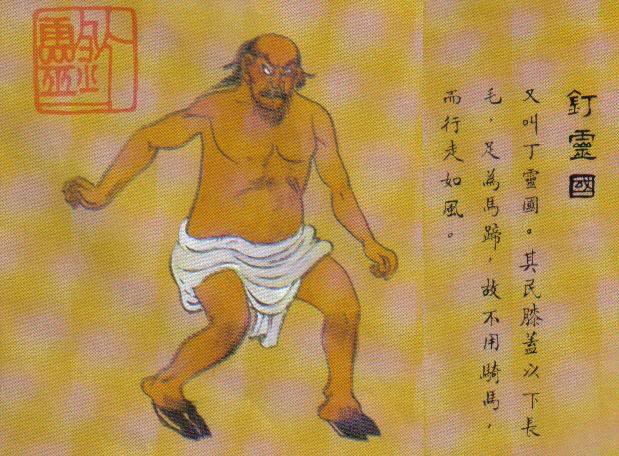 釘靈國
又叫丁靈國。其民膝蓋以下長
毛，足為馬蹄，故不用騎馬，
而行走如風。